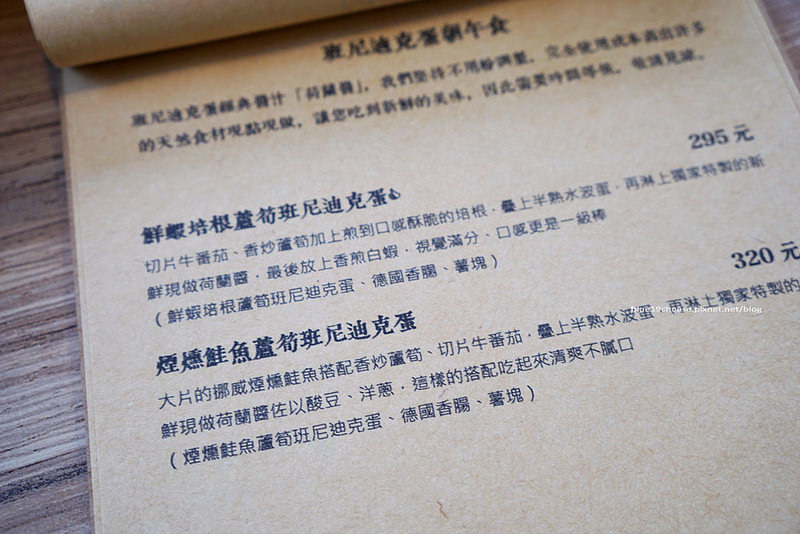 班尼迪克蛋朝午食
班尼迪克蛋經典醬汁「荷蘭醬」，我們堅持不用粉調製，完全使用成本高出許多
的天然食材現點現做，讓您吃到新鮮的美味，因此需要時間等候，敬請見諒。
295 元
鮮蝦培根蘆筍班尼迪克蛋
切片牛番茄、香炒蘆筍加上煎到口感酥脆的培根，疊上半熟水波蛋，再淋上獨家特製的新
鮮現做荷蘭醬，最後放上香煎白蝦，視覺滿分、口感更是一級棒
(鮮蝦培根蘆筍班尼迪克蛋、德國香腸、薯塊)
320 元
煙燻鮭魚蘆筍班尼迪克蛋
大片的挪威煙燻鮭魚搭配香炒蘆筍、切片牛番茄，疊上半熟水波蛋，再淋上獨家特製的
鮮現做荷蘭醬佐以酸豆、洋蔥，這樣的搭配吃起來清爽不膩口
(煙燻鮭魚蘆筍班尼迪克蛋、德國香腸、薯塊)